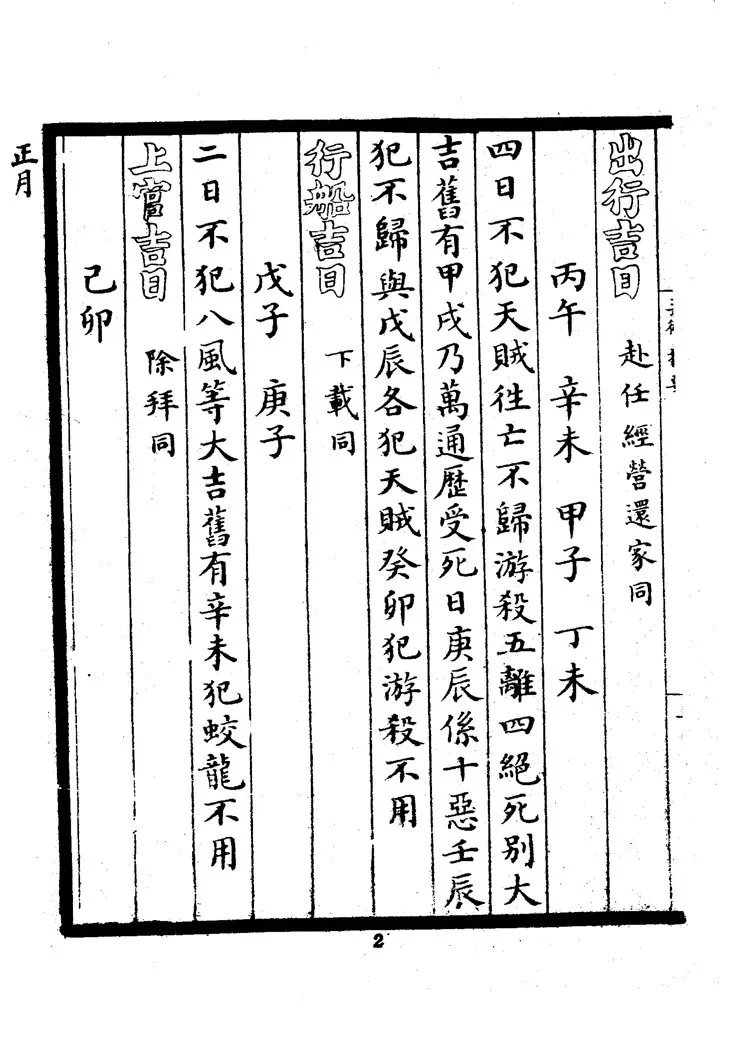 出行吉日 赴任經營還家同
丙午 辛未 甲子 丁未
四日不犯天賊徃亡不歸游殺五離四絕死別大
吉舊有甲戌乃萬通歷受死日庚辰係十惡壬辰
犯不歸與戊辰各犯天賊癸卯犯游殺不用
行船吉日 下載同
戊子 庚子
二日不犯八風等大吉舊有辛未犯蛟龍不用
上官吉日 除拜同
己卯
正月
2